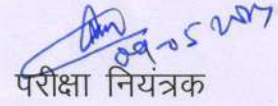 09-05-2017
परीक्षा नियंत्रक